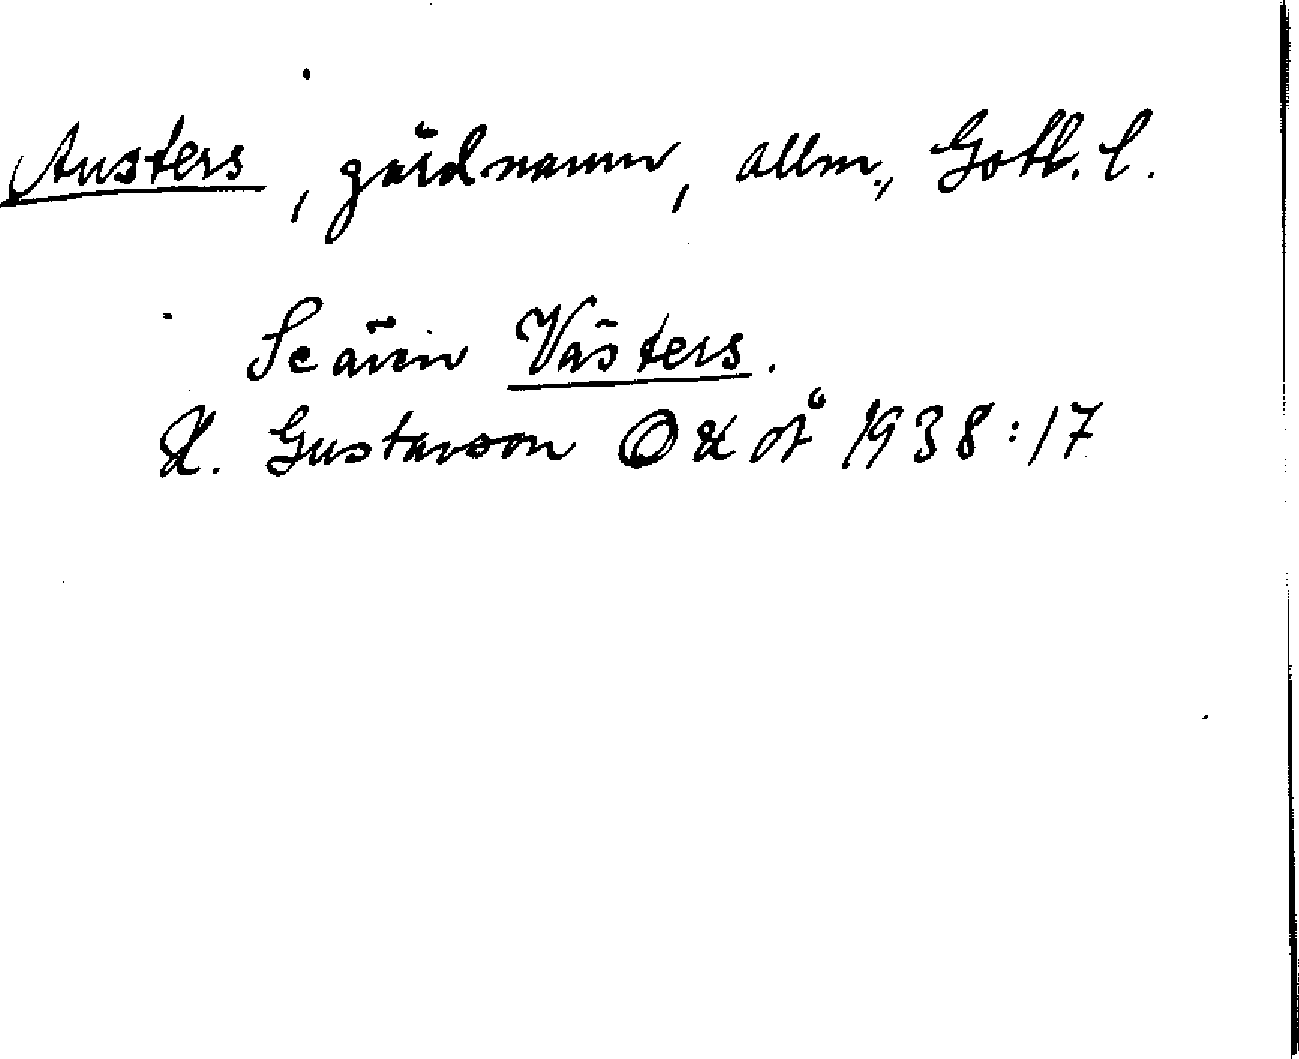 Austers, gårdnamn, allm., Gotl. l.
Se även Västers.
H. Gustavson OUoÅ 1938:17